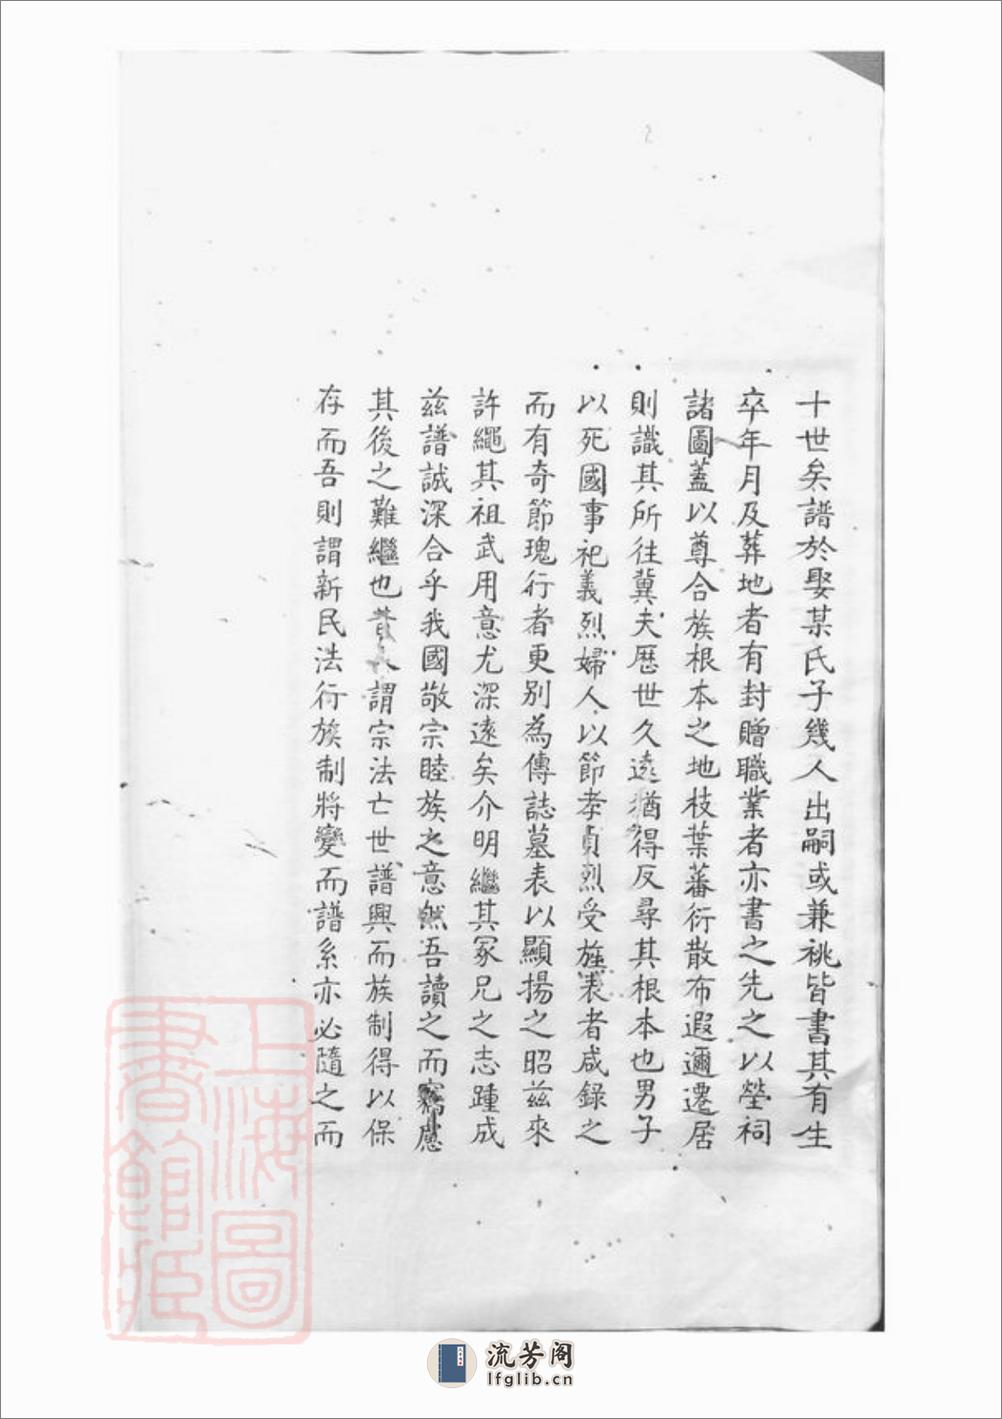 十世矣譜於娶某氏子幾人出嗣或兼祧皆書其有生
卒年月及葬地者有封贈職業者亦書之先之以塋祠
諸圖蓋以尊合族根本之地枝葉蕃衍散布遐邇遷居
則識其所往冀夫歷世久遠猶得反尋其根本也男子
以死國事祀義烈婦人以節孝貞烈受旌表者咸錄之
而有奇節瑰行者更別為傳誌墓表以顯揚之昭茲來
許繩其祖武用意尤深遠矣介明繼其冢兄之志踵成
茲譜誠深合乎我國敬宗睦族之意然吾讀之而竊慮
其後之難繼也昔人謂宗法亡世譜興而族制得以保
存而吾則謂新民法行族制將變而譜系亦必隨之而
上海圖
書館藏
流芳阁
lfglib.cn